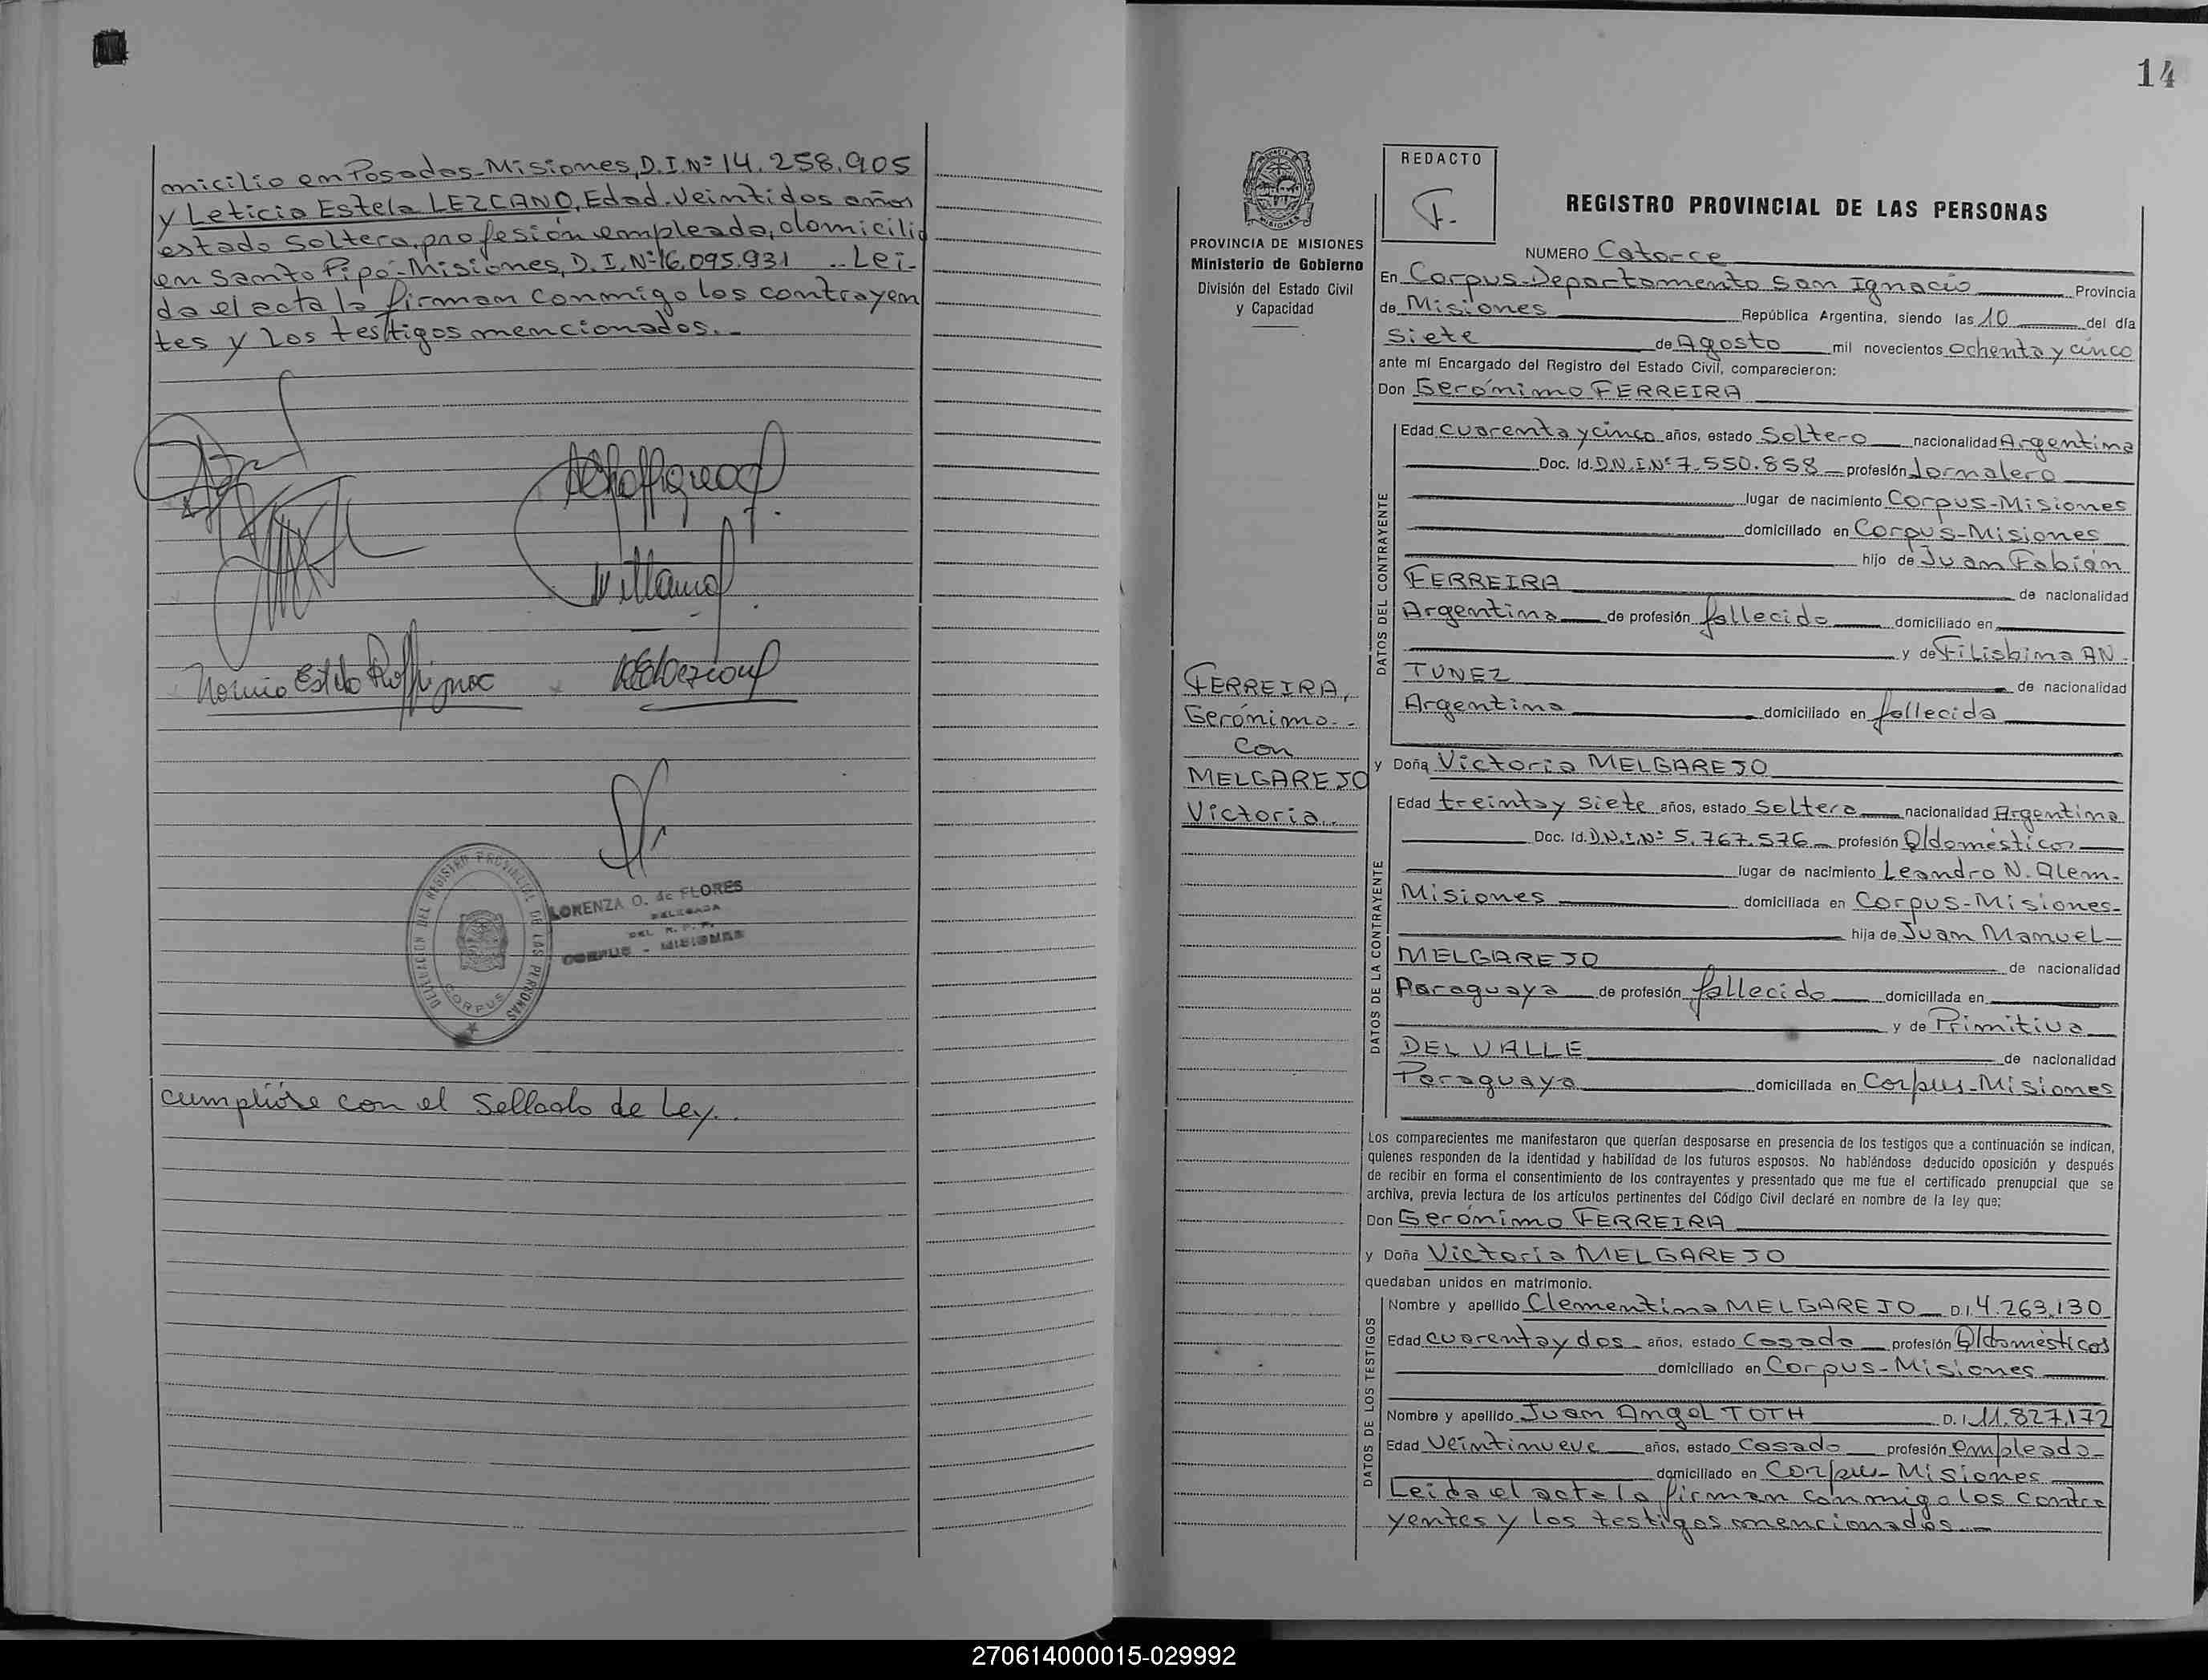 micilio en Posadas-Misiones, D.I.Nº 14.258.905
y Leticia Estela LEZCANO, Edad. Veintidos años
estado Soltera, profesión empleada, domicilio
en Santo Pipó-Misiones, D.I.Nº 16.095.931 .. Lei-
da el acta la firman conmigo los contrayen
tes y los testigos mencionados.-
DELEGACION DEL REGISTRO PROVINCIAL DE LAS PERSONAS
CORPUS
LORENZA O. de FLORES
DELEGADA
DEL R. P. P.
CORPUS - MISIONES
cumplióse con el Sellado de Ley..
14
PROVINCIA DE MISIONES
Ministerio de Gobierno
División del Estado Civil
y Capacidad
REDACTO
F.
REGISTRO PROVINCIAL DE LAS PERSONAS
NUMERO Catorce
En Corpus-Departamento San Ignacio Provincia
de Misiones República Argentina, siendo las 10 del día
Siete de Agosto mil novecientos Ochenta y cinco
ante mí Encargado del Registro del Estado Civil, comparecieron:
Don Gerónimo FERREIRA
DATOS DEL CONTRAYENTE
Edad Cuarenta y cinco años, estado Soltero nacionalidad Argentina
Doc. Id. D.N.I.Nº 7.550.858 profesión Jornalero
lugar de nacimiento Corpus-Misiones
domiciliado en Corpus-Misiones
hijo de Juan Fabián
FERREIRA de nacionalidad
Argentina de profesión fallecido domiciliado en
y de Filisbina AN-
TUNEZ de nacionalidad
Argentina domiciliado en fallecida
FERREIRA,
Gerónimo.-
Con
MELGAREJO
Victoria..
y Doña Victoria MELGAREJO
DATOS DE LA CONTRAYENTE
Edad treinta y siete años, estado Soltera nacionalidad Argentina
Doc. Id. D.N.I.Nº 5.767.576 profesión Q/domésticos
lugar de nacimiento Leandro N. Alem-
Misiones domiciliada en Corpus-Misiones-
hija de Juan Manuel-
MELGAREJO de nacionalidad
Paraguaya de profesión fallecido domiciliada en
y de Primitiva
DEL VALLE de nacionalidad
Paraguaya domiciliada en Corpus-Misiones
Los comparecientes me manifestaron que querían desposarse en presencia de los testigos que a continuación se indican,
quienes responden de la identidad y habilidad de los futuros esposos. No habiéndose deducido oposición y después
de recibir en forma el consentimiento de los contrayentes y presentado que me fue el certificado prenupcial que se
archiva, previa lectura de los artículos pertinentes del Código Civil declaré en nombre de la ley que:
Don Gerónimo FERREIRA
y Doña Victoria MELGAREJO
quedaban unidos en matrimonio.
DATOS DE LOS TESTIGOS
Nombre y apellido Clementina MELGAREJO D.I. 4.263.130
Edad cuarenta y dos años, estado Casada profesión Q/domésticos
domiciliado en Corpus-Misiones
Nombre y apellido Juan Angel TOTH D.I. 11.827.172
Edad Veintinueve años, estado Casado profesión empleado
domiciliado en Corpus-Misiones
Leida el acta la firman conmigo los contra
yentes y los testigos mencionados.-
270614000015-029992